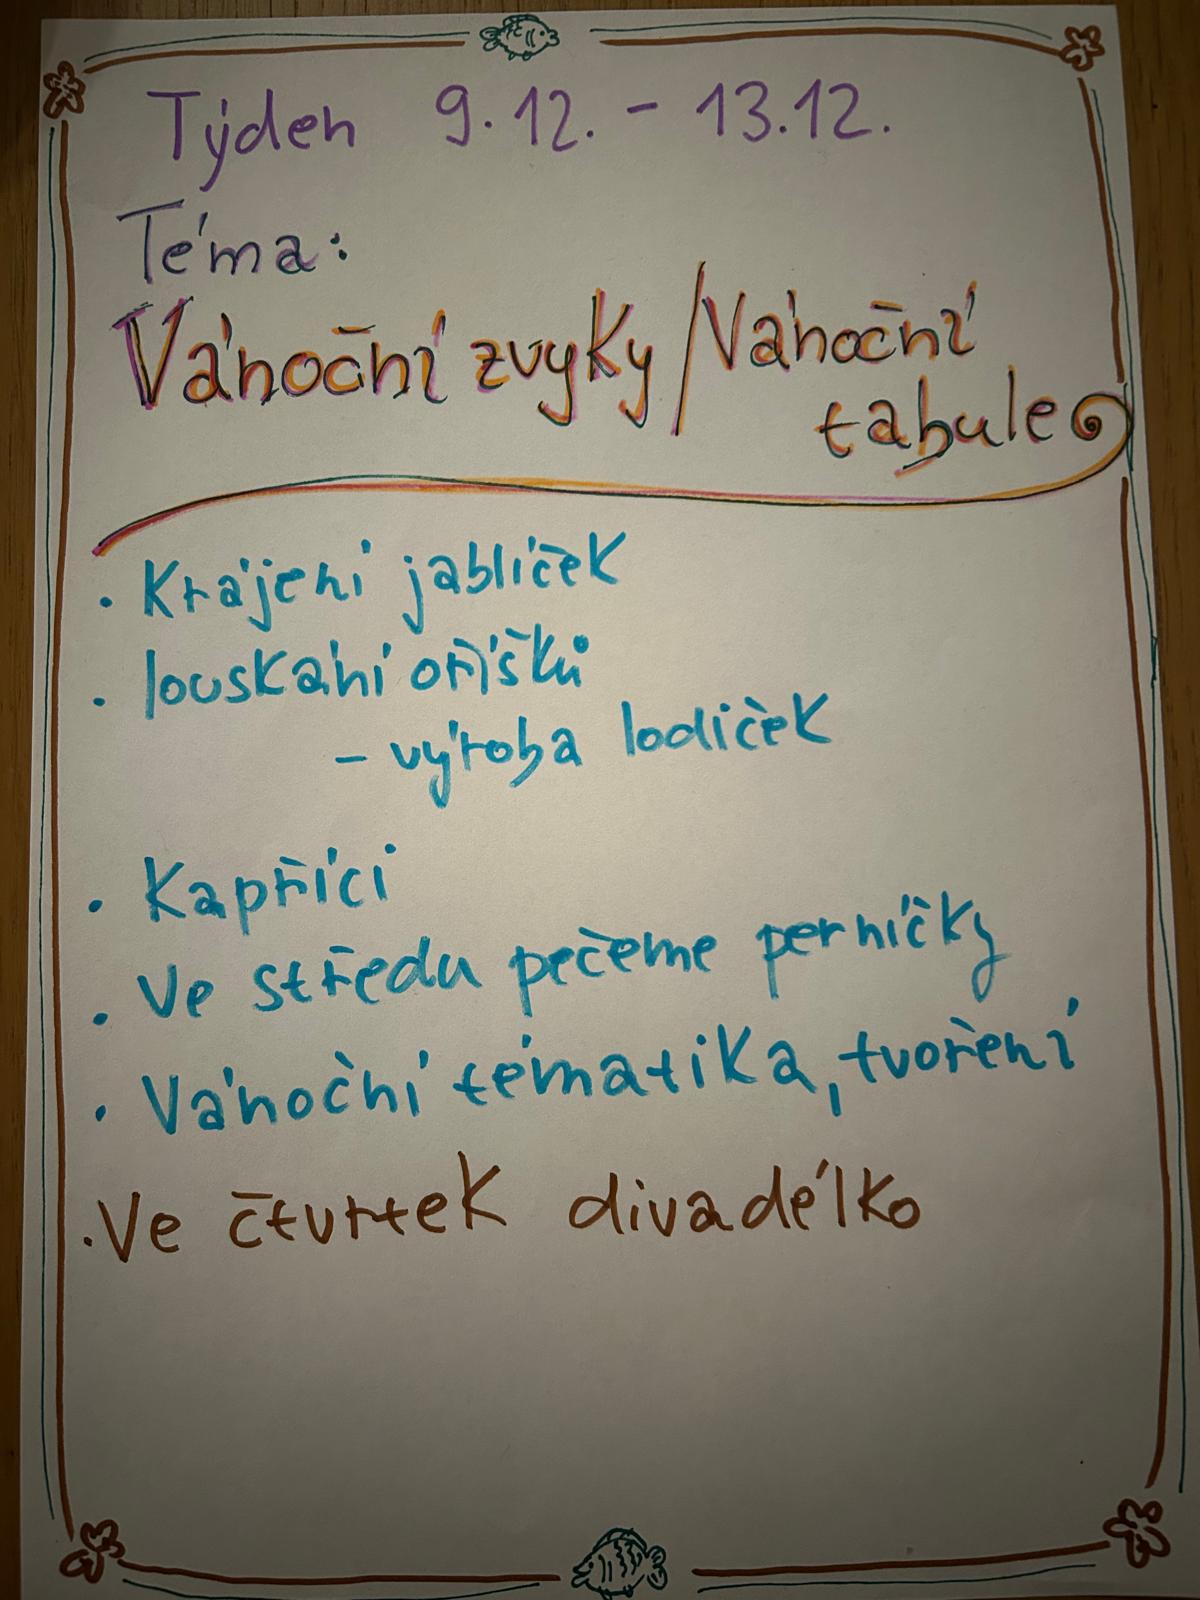 Týden 9.12. - 13.12.
Téma:
Vánoční zvyky/Vánoční
tabule
• Krájení jablíček
• louskání oříšků
- výroba lodiček
• Kapříci
• Ve středu pečeme perníčky
• Vánoční tématika, tvoření
• Ve čtvrtek divadélko